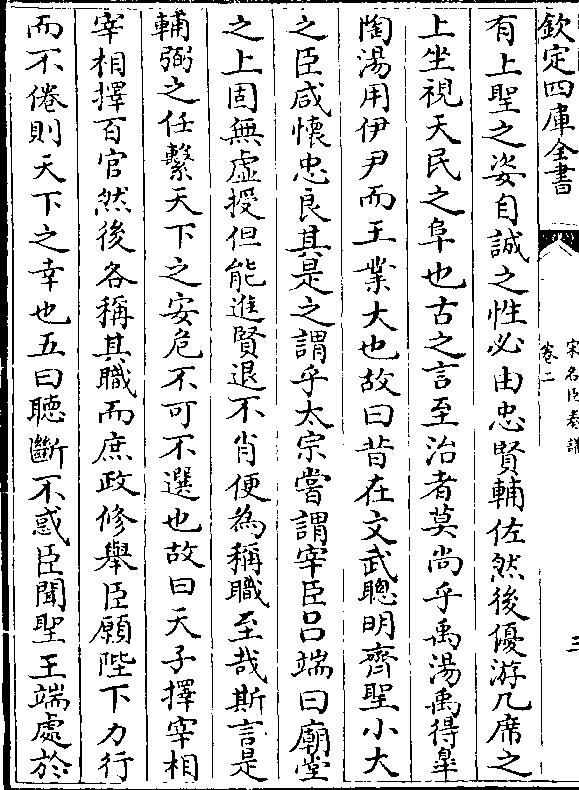 欽定四庫全書
宋名臣奏議
卷二
三
有上聖之姿自誠之性必由忠賢輔佐然後優游几席之
上坐視天民之阜也古之言至治者莫尚乎禹湯禹得臯
陶湯用伊尹而王業大也故曰昔在文武聰明齊聖小大
之臣咸懷忠良其是之謂乎太宗嘗謂宰臣吕端曰廟堂
之上固無虚授但能進賢退不肖便為稱職至哉斯言是
輔弼之任繫天下之安危不可不選也故曰天子擇宰相
宰相擇百官然後各稱其職而庶政修舉臣願陛下力行
而不倦則天下之幸也五曰聽斷不惑臣聞聖王端處於